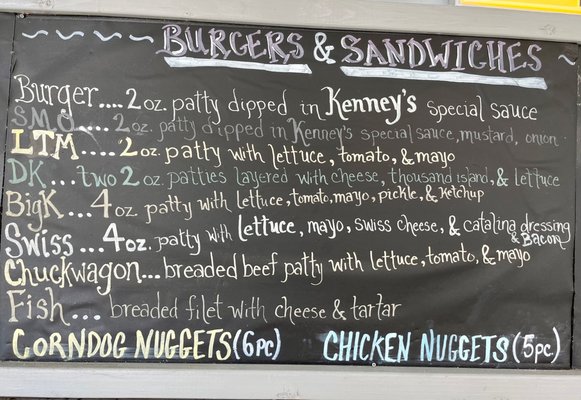 BURGERS & SANDWICHES
Burger....2 oz. patty dipped in Kenney's special sauce
SMO....2 oz. patty dipped in Kenney's special sauce, mustard, onion
LTM....2 oz. patty with lettuce, tomato, & mayo
DK...two 2 oz. patties layered with cheese, thousand island, & lettuce
BigK...4 oz patty with lettuce, tomato, mayo, pickle, & ketchup
Swiss...4 oz. patty with lettuce, mayo, swiss cheese, & catalina dressing
& Bacon
Chuckwagon...breaded beef patty with lettuce, tomato, & mayo
Fish... breaded filet with cheese & tartar
CORNDOG NUGGETS (6pc) CHICKEN NUGGETS (5pc)